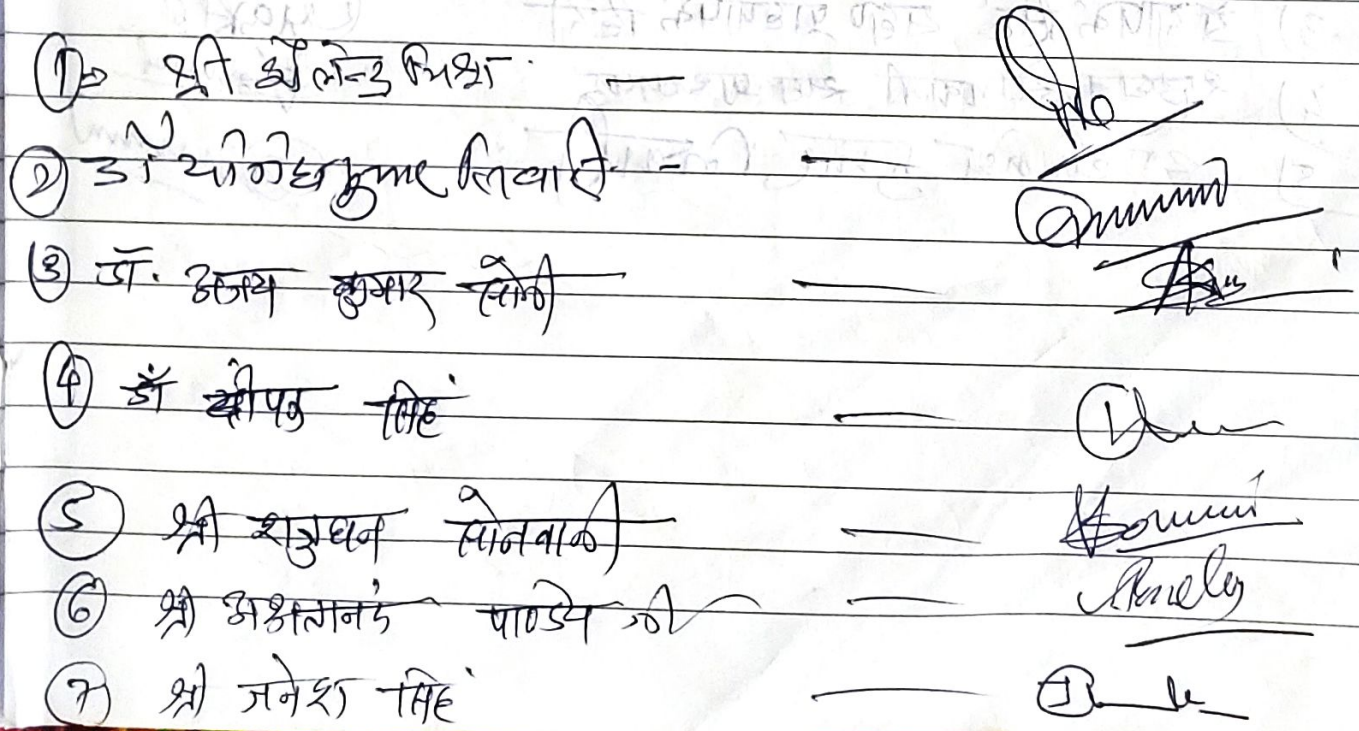 ① श्री शैलेन्द्र मिश्रा —
② डॉ योगेश कुमार तिवारी —
③ डॉ. अजय कुमार सोनी —
④ डॉ दीपक सिंह —
5 श्री शत्रुघन सोनवानी —
⑥ श्री पाण्डेय जी —
⑦ श्री जनेश सिंह —